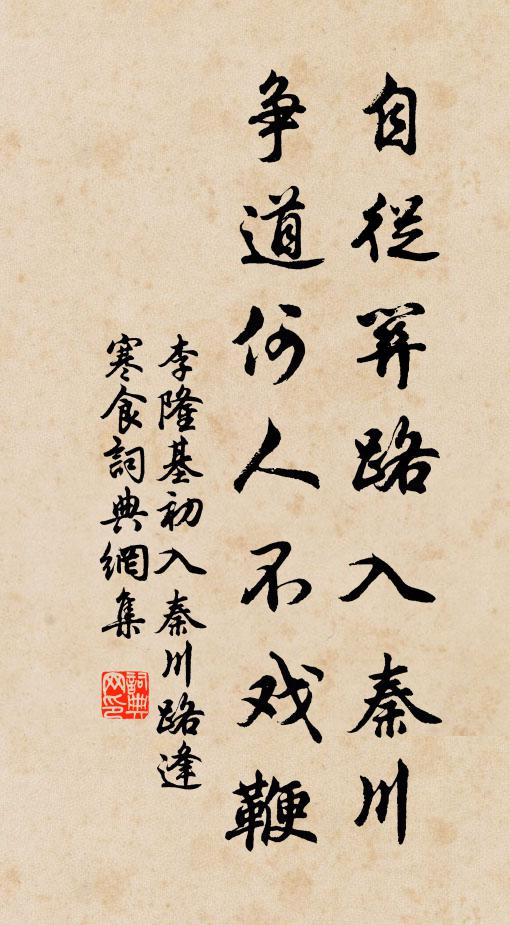 自從关路入秦川
争道何人不戏鞭
李隆基初入秦川路逢
寒食詞典網集
詞典
网印